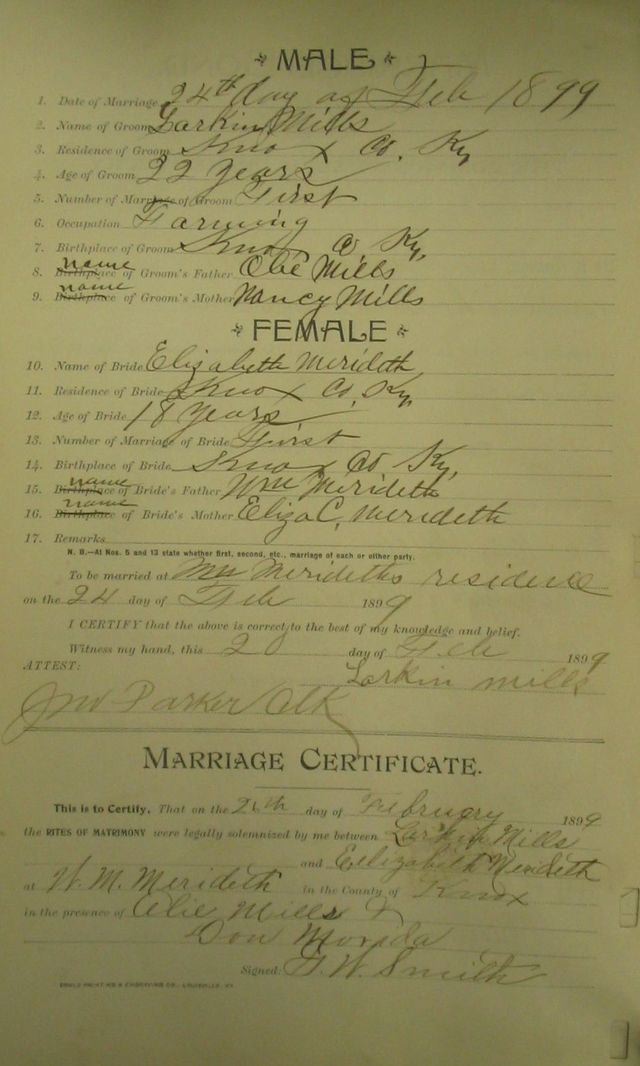 MALE
1. Date of Marriage 24th day of Feb 1899
2. Name of Groom Larkin Mills
3. Residence of Groom Knox Co. Ky
4. Age of Groom 22 years
5. Number of Marriage of Groom First
6. Occupation Farming
7. Birthplace of Groom Knox Co Ky,
8. Birthplace name of Groom's Father Obe Mills
9. Birthplace name of Groom's Mother Nancy Mills
FEMALE
10. Name of Bride Elizabeth Merideth
11. Residence of Bride Knox Co, Ky,
12. Age of Bride 18 years
13. Number of Marriage of Bride First
14. Birthplace of Bride Knox Co Ky,
15. Birthplace name of Bride's Father Wm Merideth
16. Birthplace name of Bride's Mother Eliza C, Merideth
17. Remarks
N. B.—At Nos. 5 and 13 state whether first, second, etc., marriage of each or either party.
To be married at Wm Merideths residence
on the 24 day of Feb 1899
I CERTIFY that the above is correct to the best of my knowledge and belief.
Witness my hand, this 20 day of Feb 1899
ATTEST: Larkin Mills
Jno Parker Clk
MARRIAGE CERTIFICATE.
This is to Certify, That on the day of February 1899
the RITES OF MATRIMONY were legally solemnized by me between Larkin Mills
and Elizabeth Merideth
at W. M. Merideth in the County of Knox
in the presence of Mills &
Signed: Smith